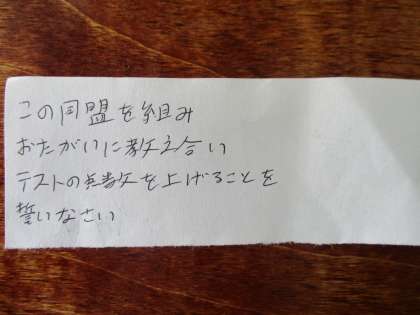 この同盟を組み
おたがいに教え合い
テストの点数を上げることを
誓いなさい